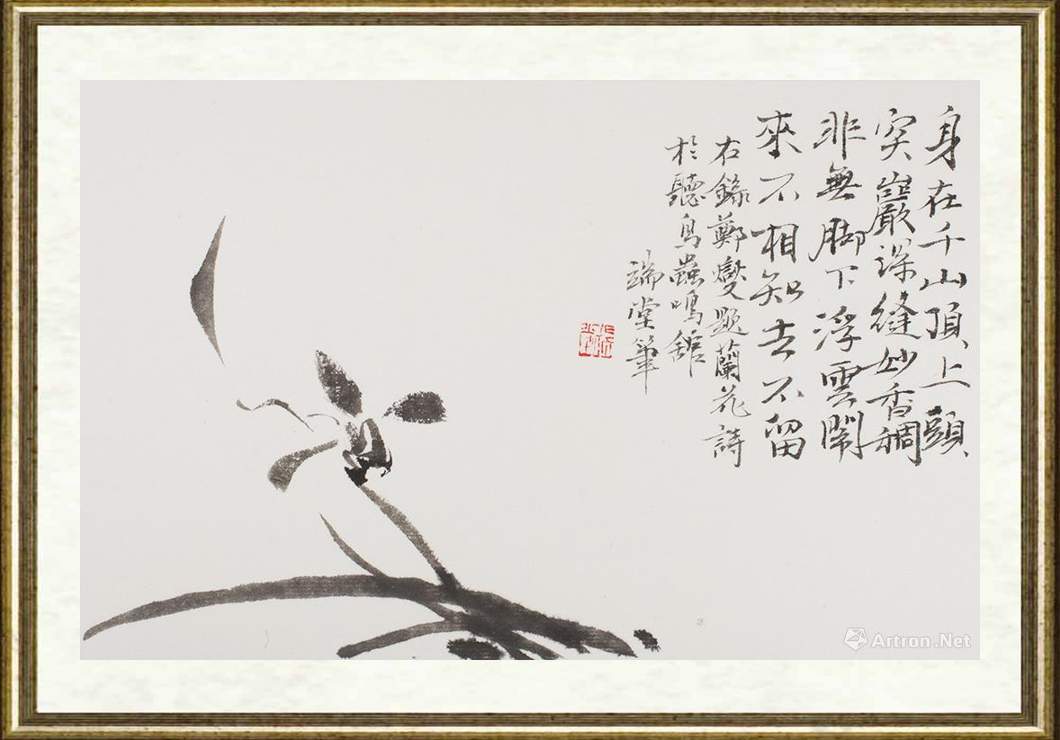 身在千山頂上頭
突巖深縫妙香稠
非無脚下浮雲鬧
來不相知去不留
右錄鄭燮題蘭花詩
於聽鳥蟲鳴館
端堂筆
Artron.Net